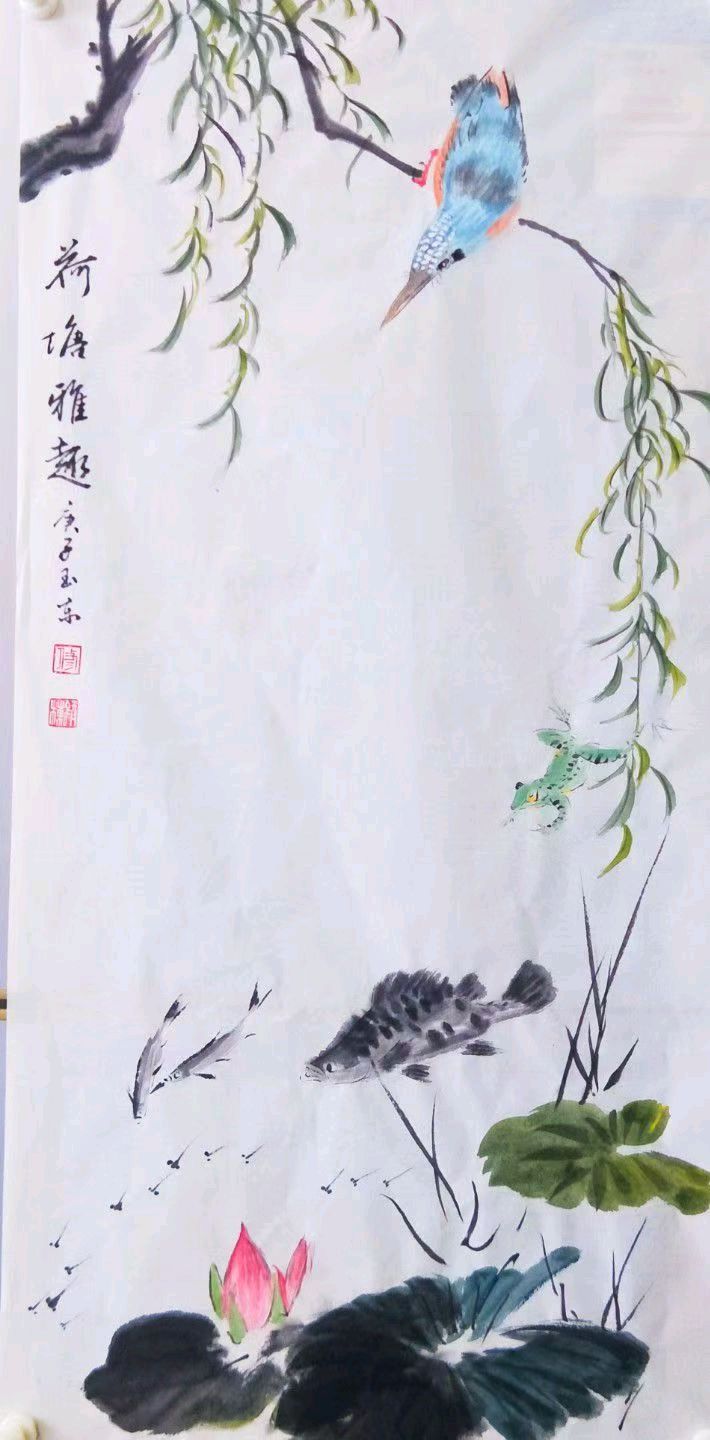 荷塘雅趣
庚子玉东